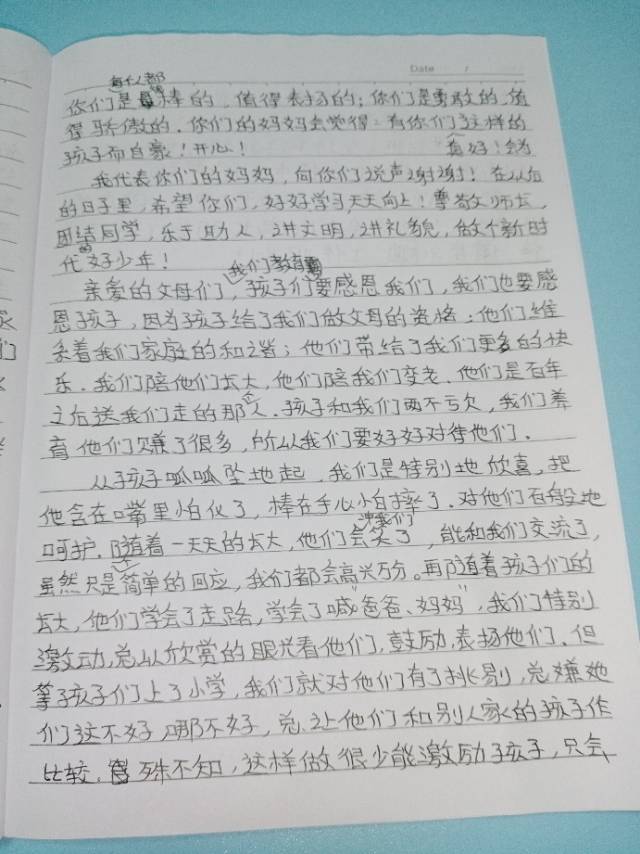 Date /
每个人都
你们是最棒的，值得表扬的；你们是勇敢的，值
得骄傲的．你们的妈妈会觉得：有你们这样的
孩子而自豪！开心！ 真好！会为
我代表你们的妈妈，向你们说声谢谢！在以后
的日子里，希望你们，好好学习，天天向上！尊敬师长，
团结同学，乐于助人，讲文明，讲礼貌，做个新时
代好少年！
我们教育
亲爱的父母们，孩子们要感恩我们，我们也要感
恩孩子，因为孩子给了我们做父母的资格；他们维
系着我们家庭的和谐；他们带给了我们更多的快
乐．我们陪他们长大，他们陪我们变老．他们是百年
之后送我们走的那个人．孩子和我们两不亏欠，我们养
育他们赚了很多，所以我们要好好对待他们．
从孩子呱呱坠地起，我们是特别地欣喜，把
他含在嘴里怕化了，棒在手心怕摔了．对他们百般地
呵护．随着一天天的长大，他们会笑了，能和我们交流了，
冲我们
虽然只是简单的回应，我们都会高兴万分。再随着孩子们的
长大，他们学会了走路，学会了喊“爸爸、妈妈”，我们特别
激动，总以欣赏的眼光看他们，鼓励，表扬他们．但
等孩子们上了小学，我们就对他们有了挑剔，总嫌她
们这不好哪不好，总让他们和别人家的孩子作
比较．殊不知，这样做很少能激励孩子，只会